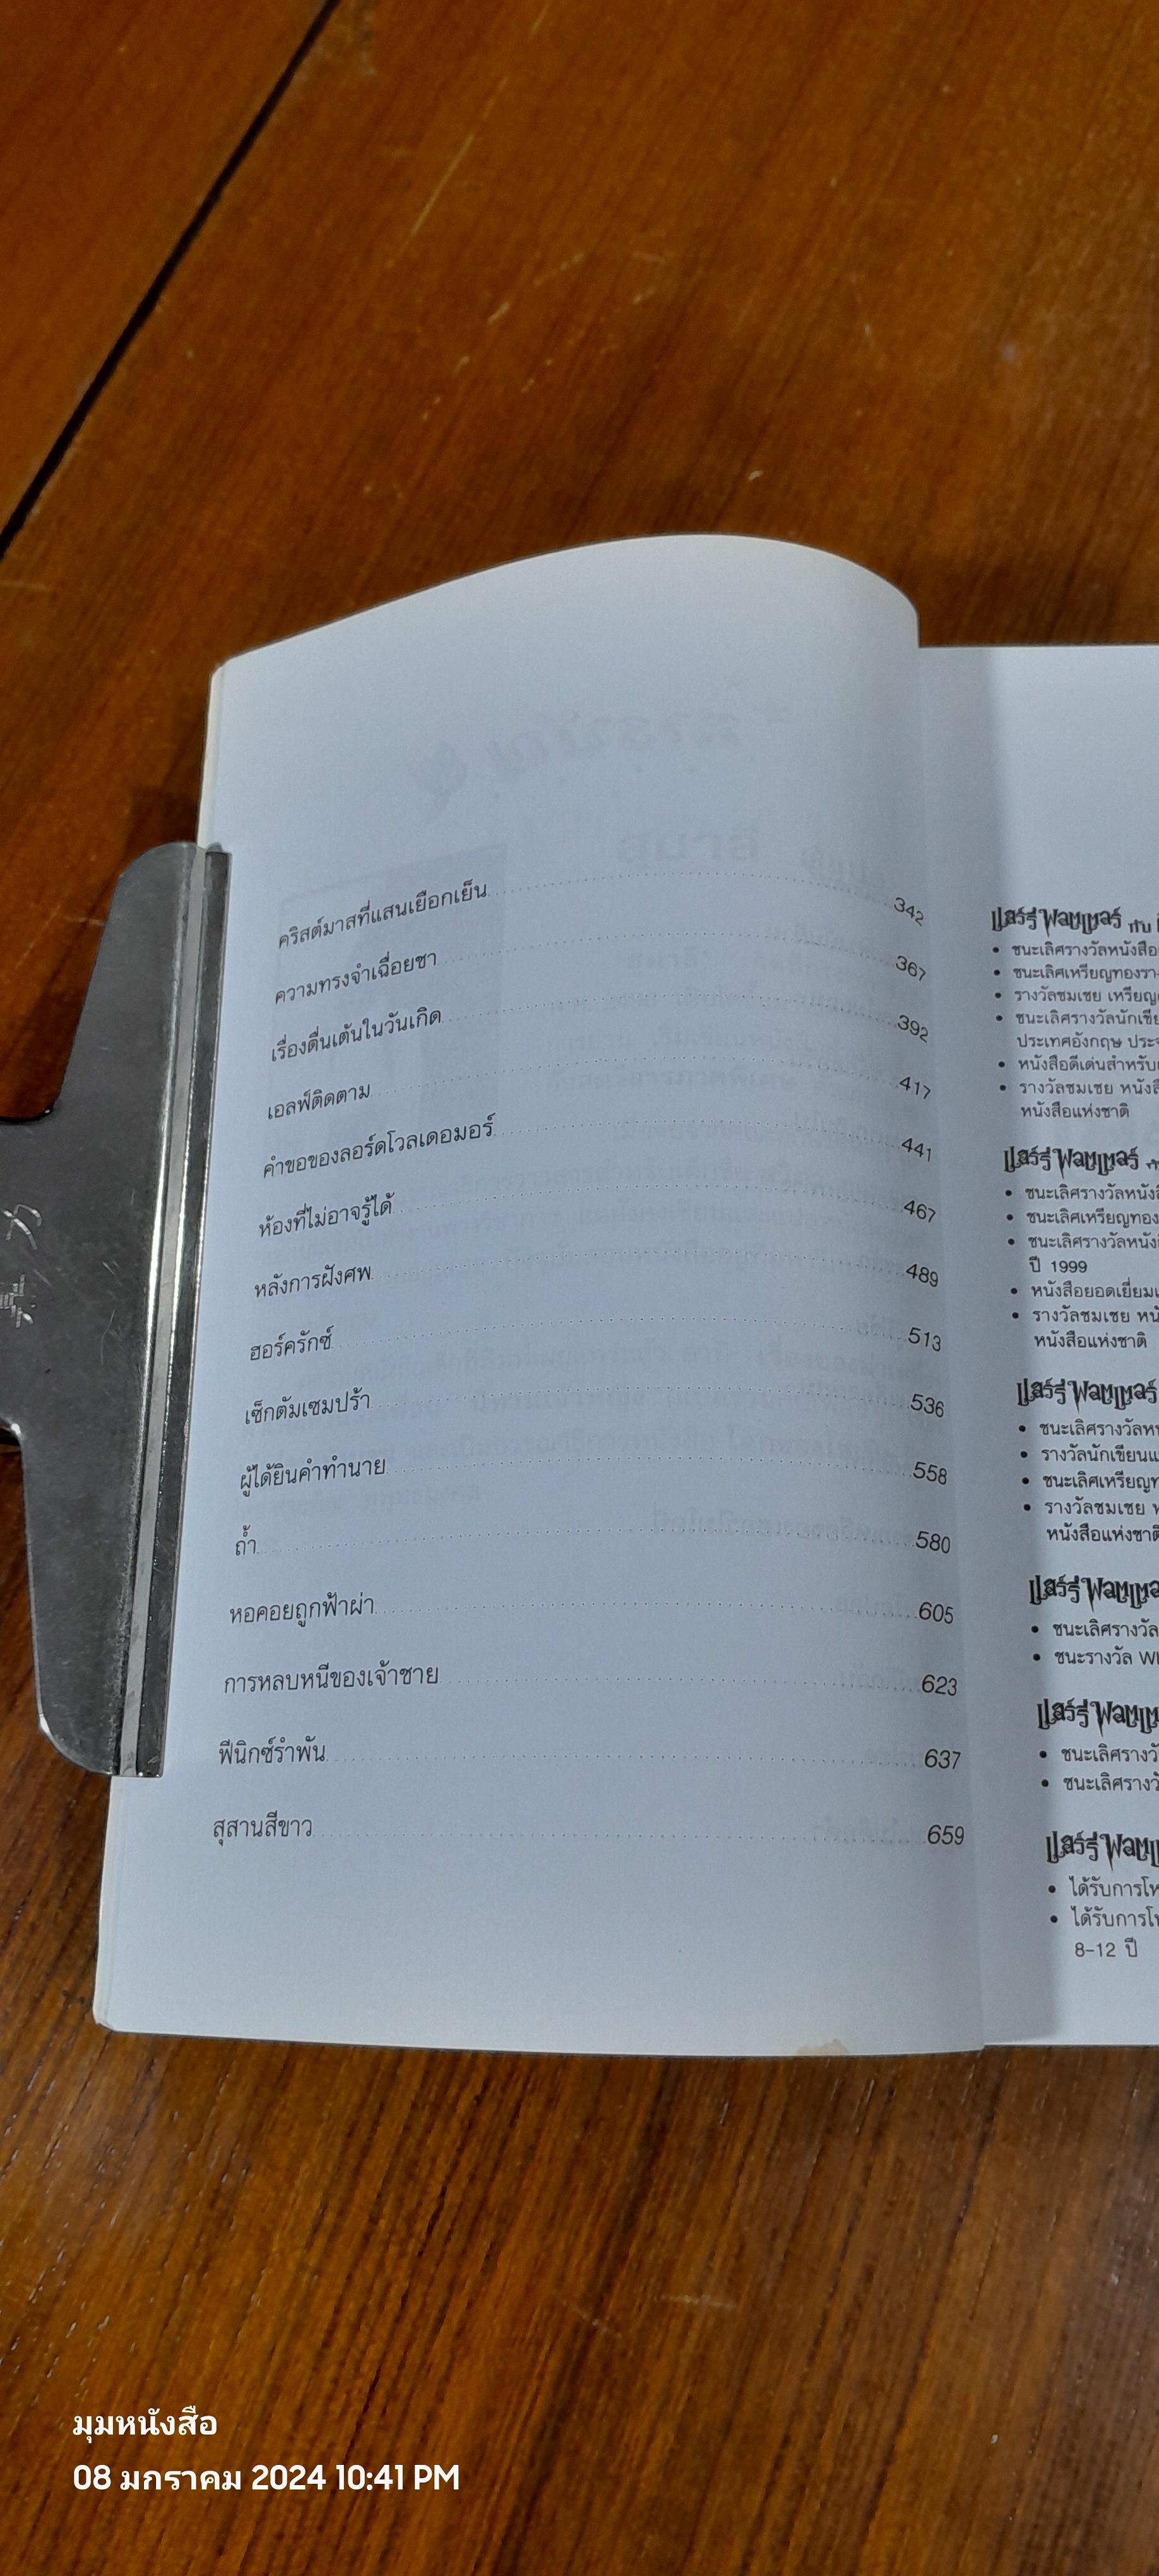 คริสต์มาสที่แสนเยือกเย็น 342
ความทรงจำเฉื่อยชา 367
เรื่องตื่นเต้นในวันเกิด 392
เอลฟ์ติดตาม 417
คำขอของลอร์ดโวลเดอมอร์ 441
ห้องที่ไม่อาจรู้ได้ 467
หลังการฝังศพ 489
ฮอร์ครักซ์ 513
เซ็กตัมเซมปร้า 536
ผู้ได้ยินคำทำนาย 558
ถ้ำ 580
หอคอยถูกฟ้าผ่า 605
การหลบหนีของเจ้าชาย 623
ฟีนิกซ์รำพัน 637
สุสานสีขาว 659
แฮร์รี่ พอตเตอร์ กับ
• ชนะเลิศรางวัลหนังสือ
• ชนะเลิศเหรียญทอง
• รางวัลชมเชย
• ชนะเลิศรางวัล
ประเทศอังกฤษ
• หนังสือดีเด่นสำหรับ
• รางวัลชมเชย
หนังสือแห่งชาติ
แฮร์รี่ พอตเตอร์
• ชนะเลิศรางวัล
• ชนะเลิศเหรียญทอง
• ชนะเลิศรางวัล
ปี 1999
• หนังสือยอดเยี่ยม
• รางวัลชมเชย
หนังสือแห่งชาติ
แฮร์รี่ พอตเตอร์
• ชนะเลิศรางวัล
• รางวัลนักเขียน
• ชนะเลิศเหรียญ
• รางวัลชมเชย
หนังสือแห่งชาติ
แฮร์รี่
• ชนะเลิศรางวัล
• ชนะรางวัล
แฮร์รี่
• ชนะเลิศ
• ชนะเลิศ
แฮร์รี่
• ได้รับการ
• ได้รับการ
8-12 ปี
มุมหนังสือ
08 มกราคม 2024 10:41 PM